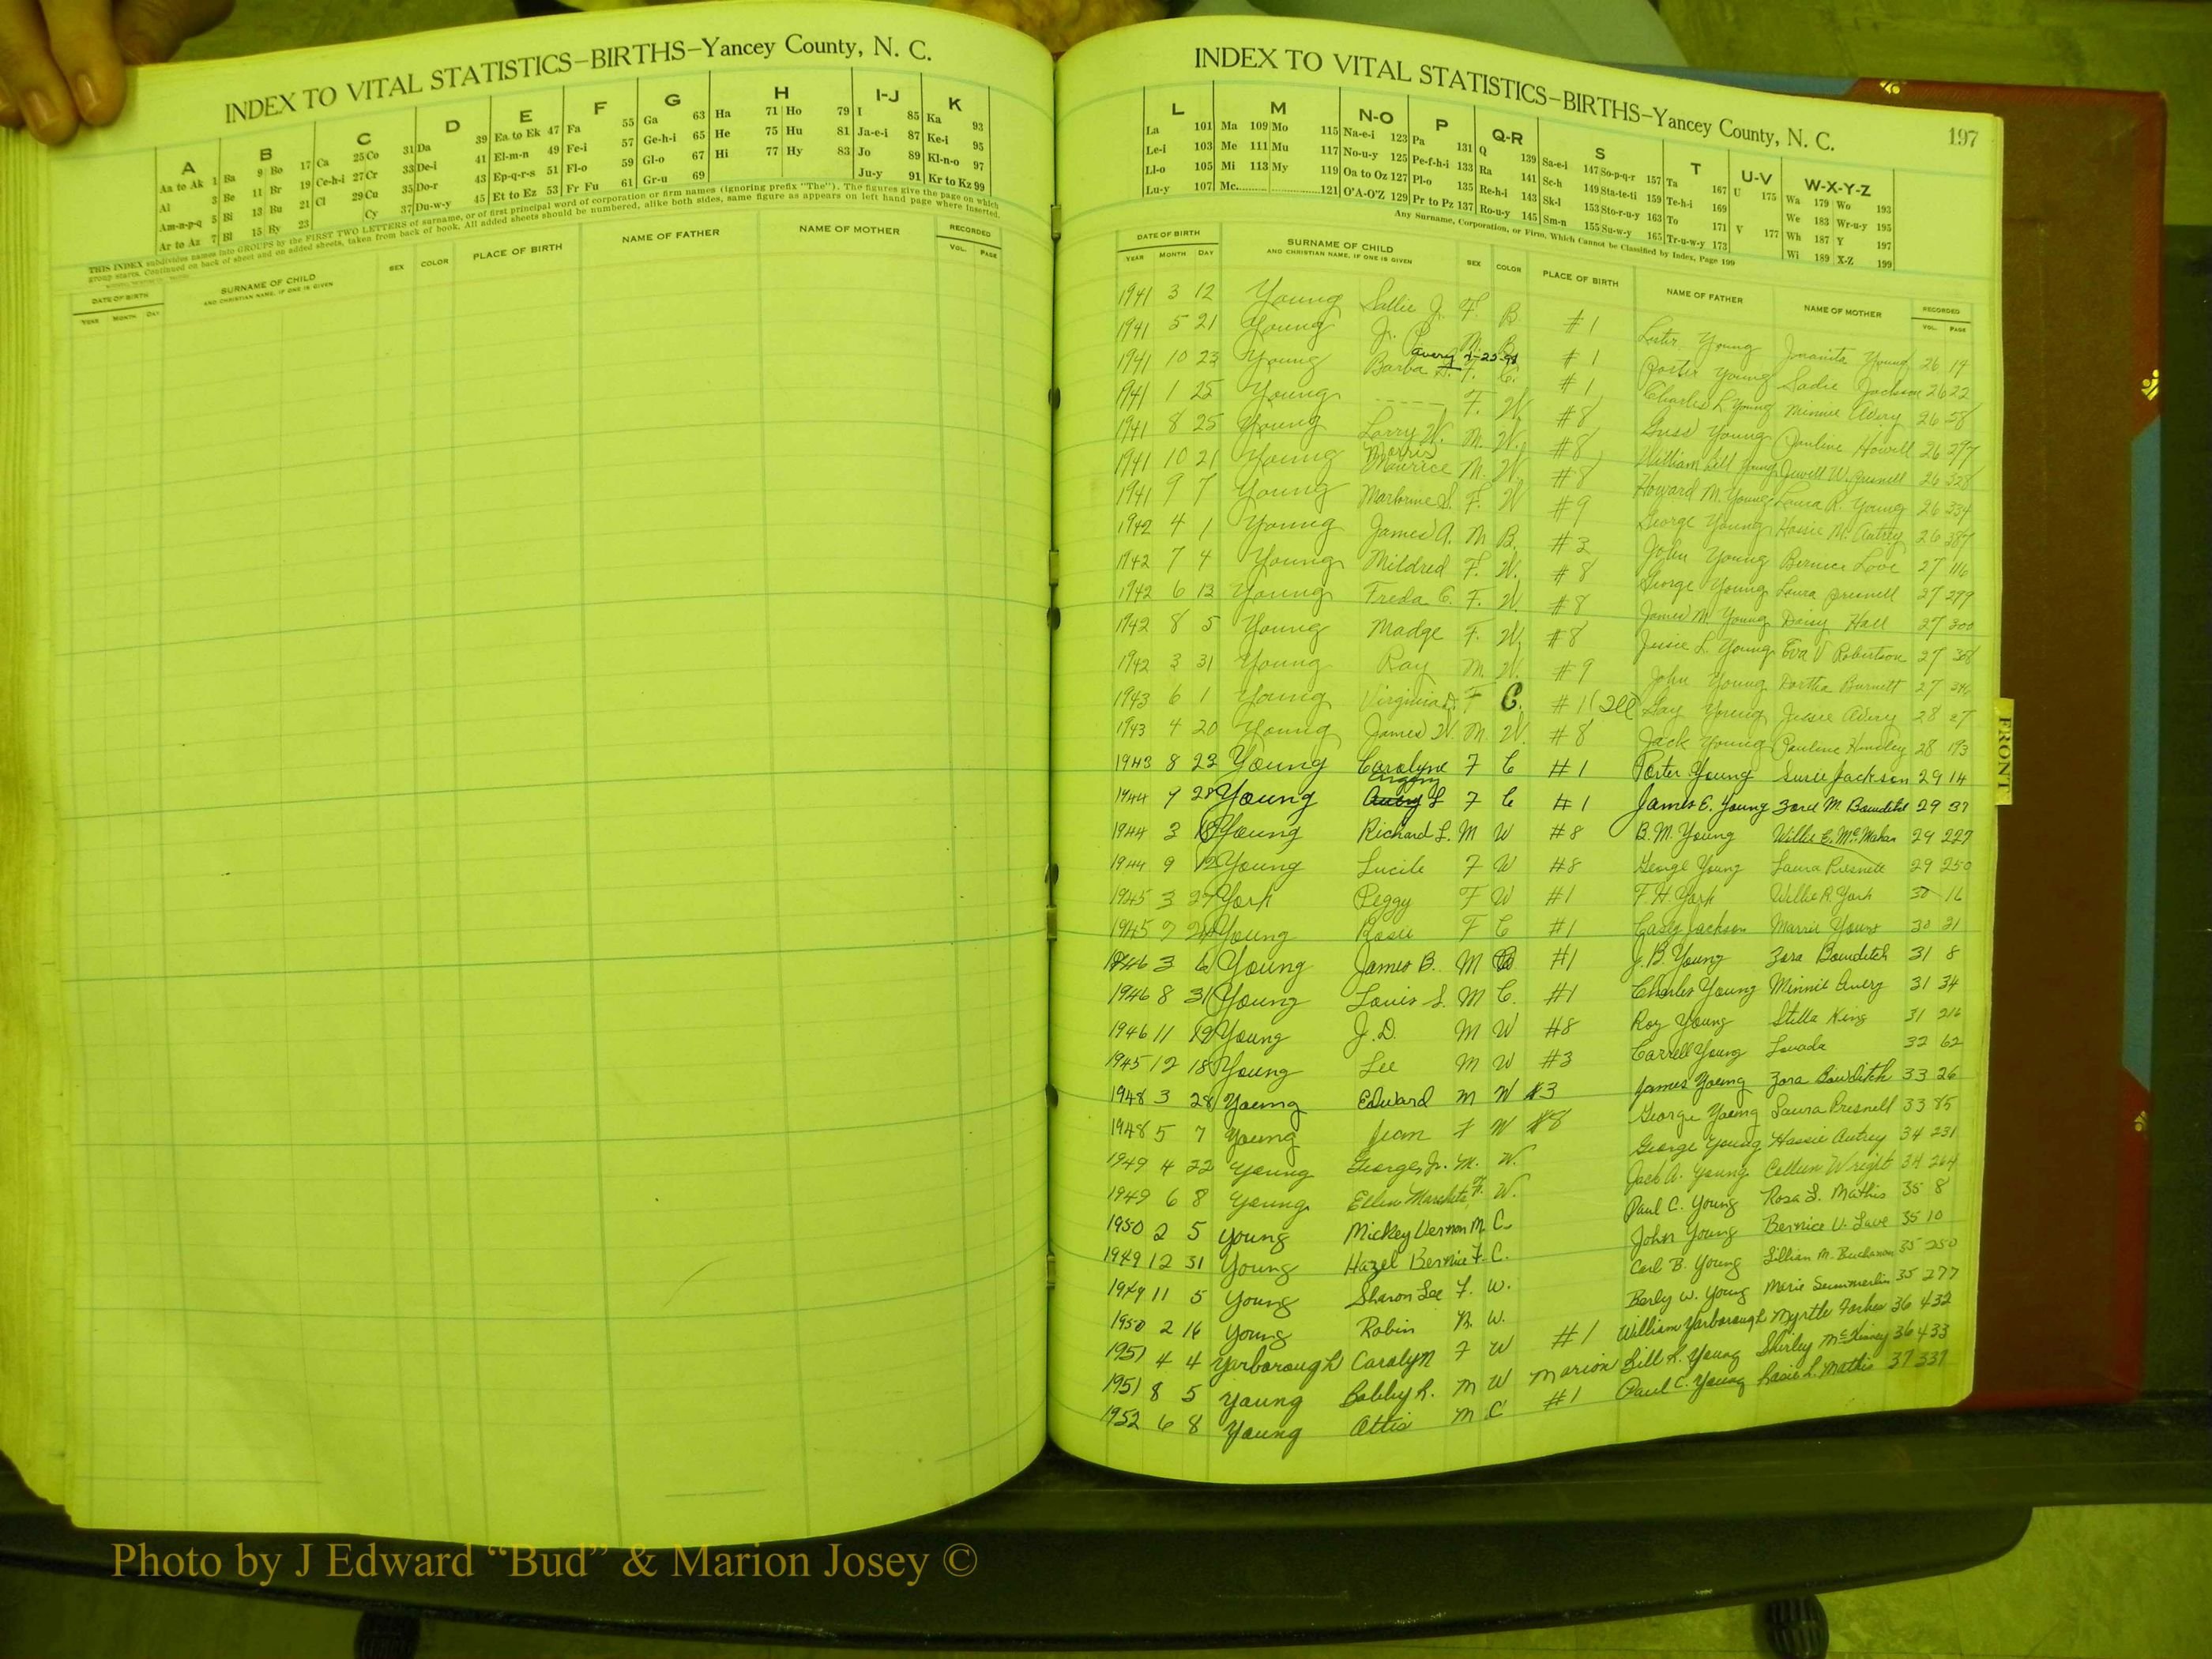 INDEX TO VITAL STATISTICS–BIRTHS–Yancey County, N. C.
A B C D E F G H I-J K
Aa to Ak 1 Ba 9 Bo 17 Ca 25 Co 31 Da 39 Ea to Ek 47 Fa 55 Ga 63 Ha 71 Ho 79 I 85 Ka 93
Al 3 Be 11 Br 19 Ce-h-i 27 Cr 33 De-i 41 El-m-n 49 Fe-i 57 Ge-h-i 65 He 75 Hu 81 Ja-e-i 87 Ke-i 95
Am-n-p-q 5 Bi 13 Bu 21 Cl 29 Cu 35 Do-r 43 Ep-q-r-s 51 Fl-o 59 Gl-o 67 Hi 77 Hy 83 Jo 89 Kl-n-o 97
Ar to Az 7 Bl 15 By 23 Cy 37 Du-w-y 45 Et to Ez 53 Fr Fu 61 Gr-u 69 Ju-y 91 Kr to Kz 99
THIS INDEX subdivides names into GROUPS by the FIRST TWO LETTERS of surname, or of first principal word of corporation or firm names (ignoring prefix "The"). The figures give the page on which
group starts. Continued on back of sheet and on added sheets, taken from back of book. All added sheets should be numbered, alike both sides, same figure as appears on left hand page where inserted.
DATE OF BIRTH SURNAME OF CHILD SEX COLOR PLACE OF BIRTH NAME OF FATHER NAME OF MOTHER RECORDED
YEAR MONTH DAY AND CHRISTIAN NAME, IF ONE IS GIVEN VOL. PAGE
INDEX TO VITAL STATISTICS–BIRTHS–Yancey County, N. C. 197
L M N-O P Q-R S T U-V W-X-Y-Z
La 101 Ma 109 Mo 115 Na-e-i 123 Pa 131 Q 139 Sa-e-i 147 So-p-q-r 157 Ta 167 U 175 Wa 179 Wo 193
Le-i 103 Me 111 Mu 117 No-u-y 125 Pe-f-h-i 133 Ra 141 Sc-h 149 Sta-te-ti 159 Te-h-i 169 We 183 Wr-u-y 195
Ll-o 105 Mi 113 My 119 Oa to Oz 127 Pl-o 135 Re-h-i 143 Sk-l 153 Sto-r-u-y 163 To 171 V 177 Wh 187 Y 197
Lu-y 107 Mc 121 O'A-O'Z 129 Pr to Pz 137 Ro-u-y 145 Sm-n 155 Su-w-y 165 Tr-u-w-y 173 Wi 189 X-Z 199
Any Surname, Corporation, or Firm, Which Cannot be Classified by Index, Page 199
DATE OF BIRTH SURNAME OF CHILD SEX COLOR PLACE OF BIRTH NAME OF FATHER NAME OF MOTHER RECORDED
YEAR MONTH DAY AND CHRISTIAN NAME, IF ONE IS GIVEN VOL. PAGE
1941 3 12 Young Sallie J. F. B. #1 Lester Young Young 26 19
1941 5 21 Young Jr. P. M. B. #1 Porter Young Sadie Jackson 26 22
1941 10 23 Young Barba F. C. #1 Charles L. Young Minnie Avery 26 58
1941 1 25 Young ----- F. W. #8 Young Pauline Howell 26 297
1941 8 25 Young Larry W. M. W. #8 William Bill Young Jewell W. Presnell 26 328
1941 10 21 Young Morris Maurice M. W. #8 Howard M. Young Laura R. Young 26 334
1941 9 7 Young F. W #9 George Young Hassie M. Autrey 26 387
1942 4 1 Young James A. M B. #3 John Young Bernice Love 27 116
1942 7 4 Young Mildred F. W. #8 George Young Laura Presnell 27 279
1942 6 13 Young Freda C. F. W. #8 James M. Young Daisy Hall 27 300
1942 8 5 Young Madge F. W. #8 Jessie L. Young Eva V Robertson 27
1942 3 31 Young Ray M. W. #9 John Young Burnett 27
1943 6 1 Young Virginia D. F C. #1 Gay Young Jessie Avery 28 27
1943 4 20 Young James W. M. W. #8 Jack Young Pauline Hensley 28 193
1943 8 23 Young Carolyne F C #1 Porter Young Susie Jackson 29 14
1944 9 28 Young L F C #1 James E. Young M. Bowditch 29 37
1944 3 18 Young Richard L. M W #8 B. M. Young Willie E. McMahan 29 227
1944 9 12 Young Lucile F W #8 George Young Laura Presnell 29 250
1945 3 27 York Peggy F W #1 F. H. York Willie R. York 30 16
1945 7 Young Rosie F C #1 Casey Jackson Young 30 21
1946 3 6 Young James B. M #1 J. B. Young Zora Bowditch 31 8
1946 8 31 Young Louis L. M C. #1 Charles Young Minnie Avery 31 34
1946 11 19 Young J. D. M W #8 Roy Young Stella King 31 216
1945 12 18 Young Lee M W #3 Carrell Young Lovada 32 62
1948 3 28 Young Edward M W #3 James Young Zora Bowditch 33 26
1948 5 7 Young Jean F W #8 George Young Laura Presnell 33 85
1949 4 22 Young George, Jr. M. W. George Young Hassie Autrey 34 231
1949 6 8 Young Ellen F. W. Jack A. Young Colleen Wright 34 264
1950 2 5 Young Mickey Vernon M. C. Paul C. Young Rosa L. Mathis 35 8
1949 12 31 Young Hazel Bernice F. C. John Young Bernice V. Love 35 10
1949 11 5 Young Sharon Lee F. W. Carl B. Young Lillian M. Buchanan 35 250
1950 2 16 Young Robin M. W. Berly W. Young Marie Summerlin 35 277
1951 4 4 Yarborough Carolyn F W #1 William Yarborough Myrtle Forbes 36 432
1951 8 5 Young Bobby R. M W Marion Bill R. Young Shirley McKinney 36 433
1952 6 8 Young Ottis M C #1 Paul C. Young Rosie L. Mathis 37 337
FRONT
Photo by J Edward “Bud” & Marion Josey ©